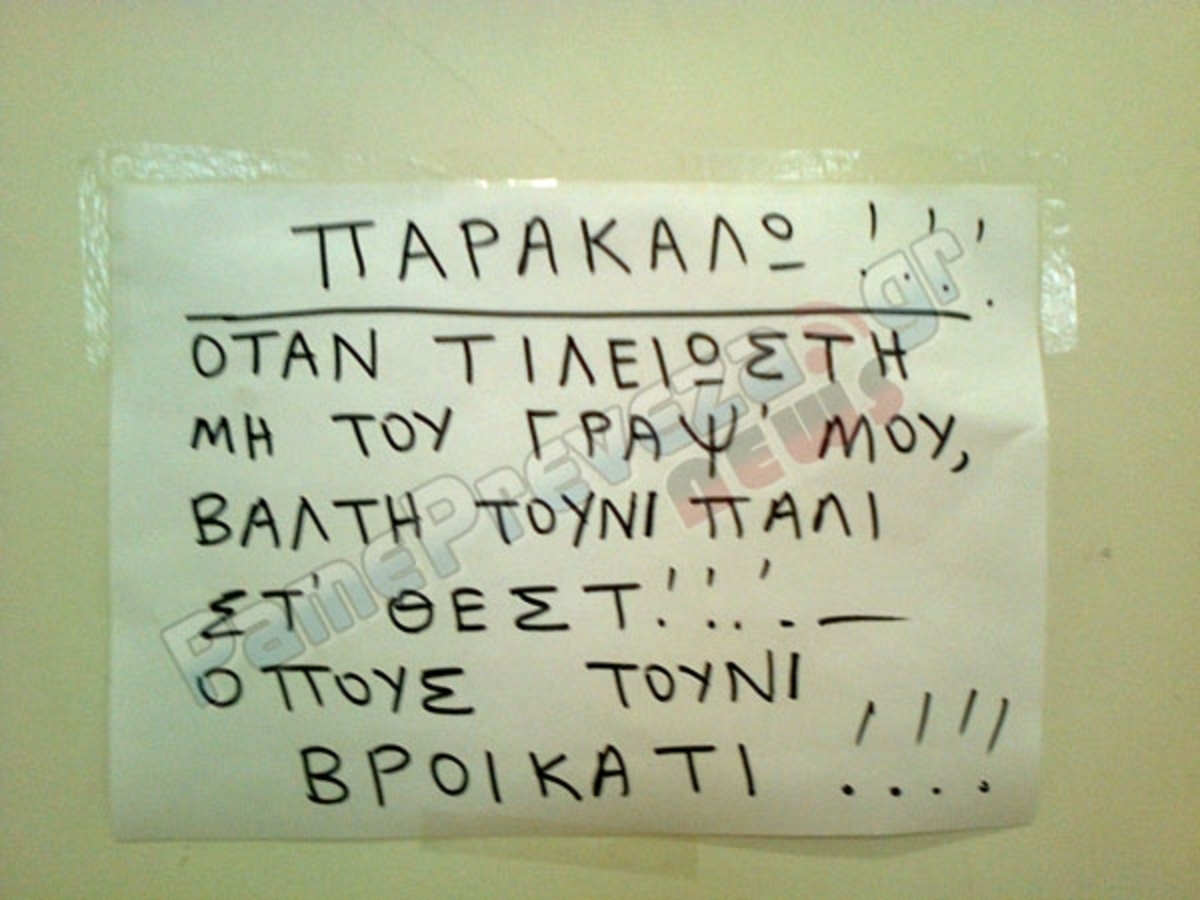 ΠΑΡΑΚΑΛΩ !!!
ΟΤΑΝ ΤΙΛΕΙΩΣΤΗ
ΜΗ ΤΟΥ ΓΡΑΨ' ΜΟΥ,
ΒΑΛΤΗ ΤΟΥΝΙ ΠΑΛΙ
ΣΤ' ΘΕΣΤ!!!.—
ΟΠΟΥΣ ΤΟΥΝΙ
ΒΡΟΙΚΑΤΙ !!!!
PamePreveza.gr
news